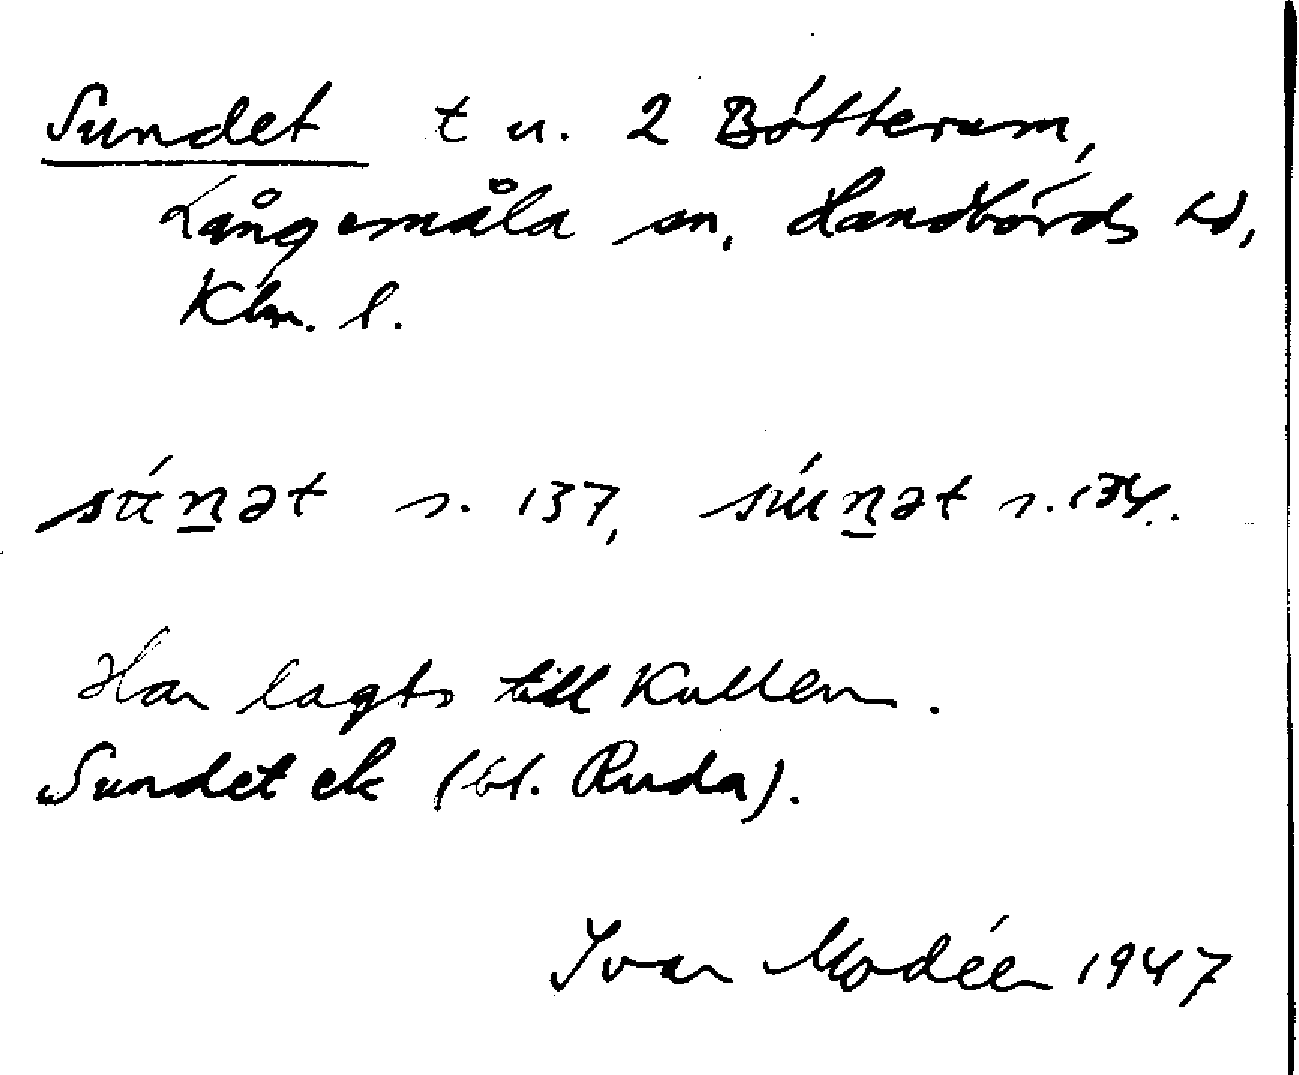 Sundet t u. 2 Bötterum,
Långemåla sn, Handbörds hd,
Klm. l.
sún̲ət s. 137, súun̲ət s. 134.
Har lagts till Kullen.
Sundet ek (bl. Ruda).
Ivar Modéer 1947